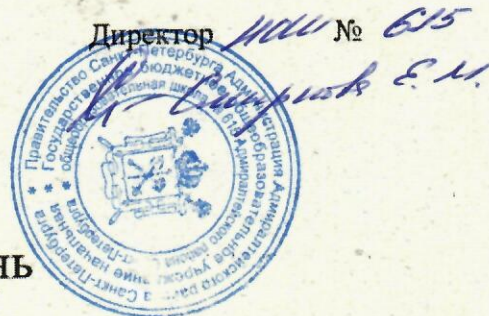 Директор НОШ № 615
Смирнова Е.М.
Правительство Санкт-Петербурга Администрация Адмиралтейского района Санкт-Петербурга
Государственное бюджетное общеобразовательное учреждение начальная
общеобразовательная школа № 615 Адмиралтейского района Санкт-Петербурга
нь